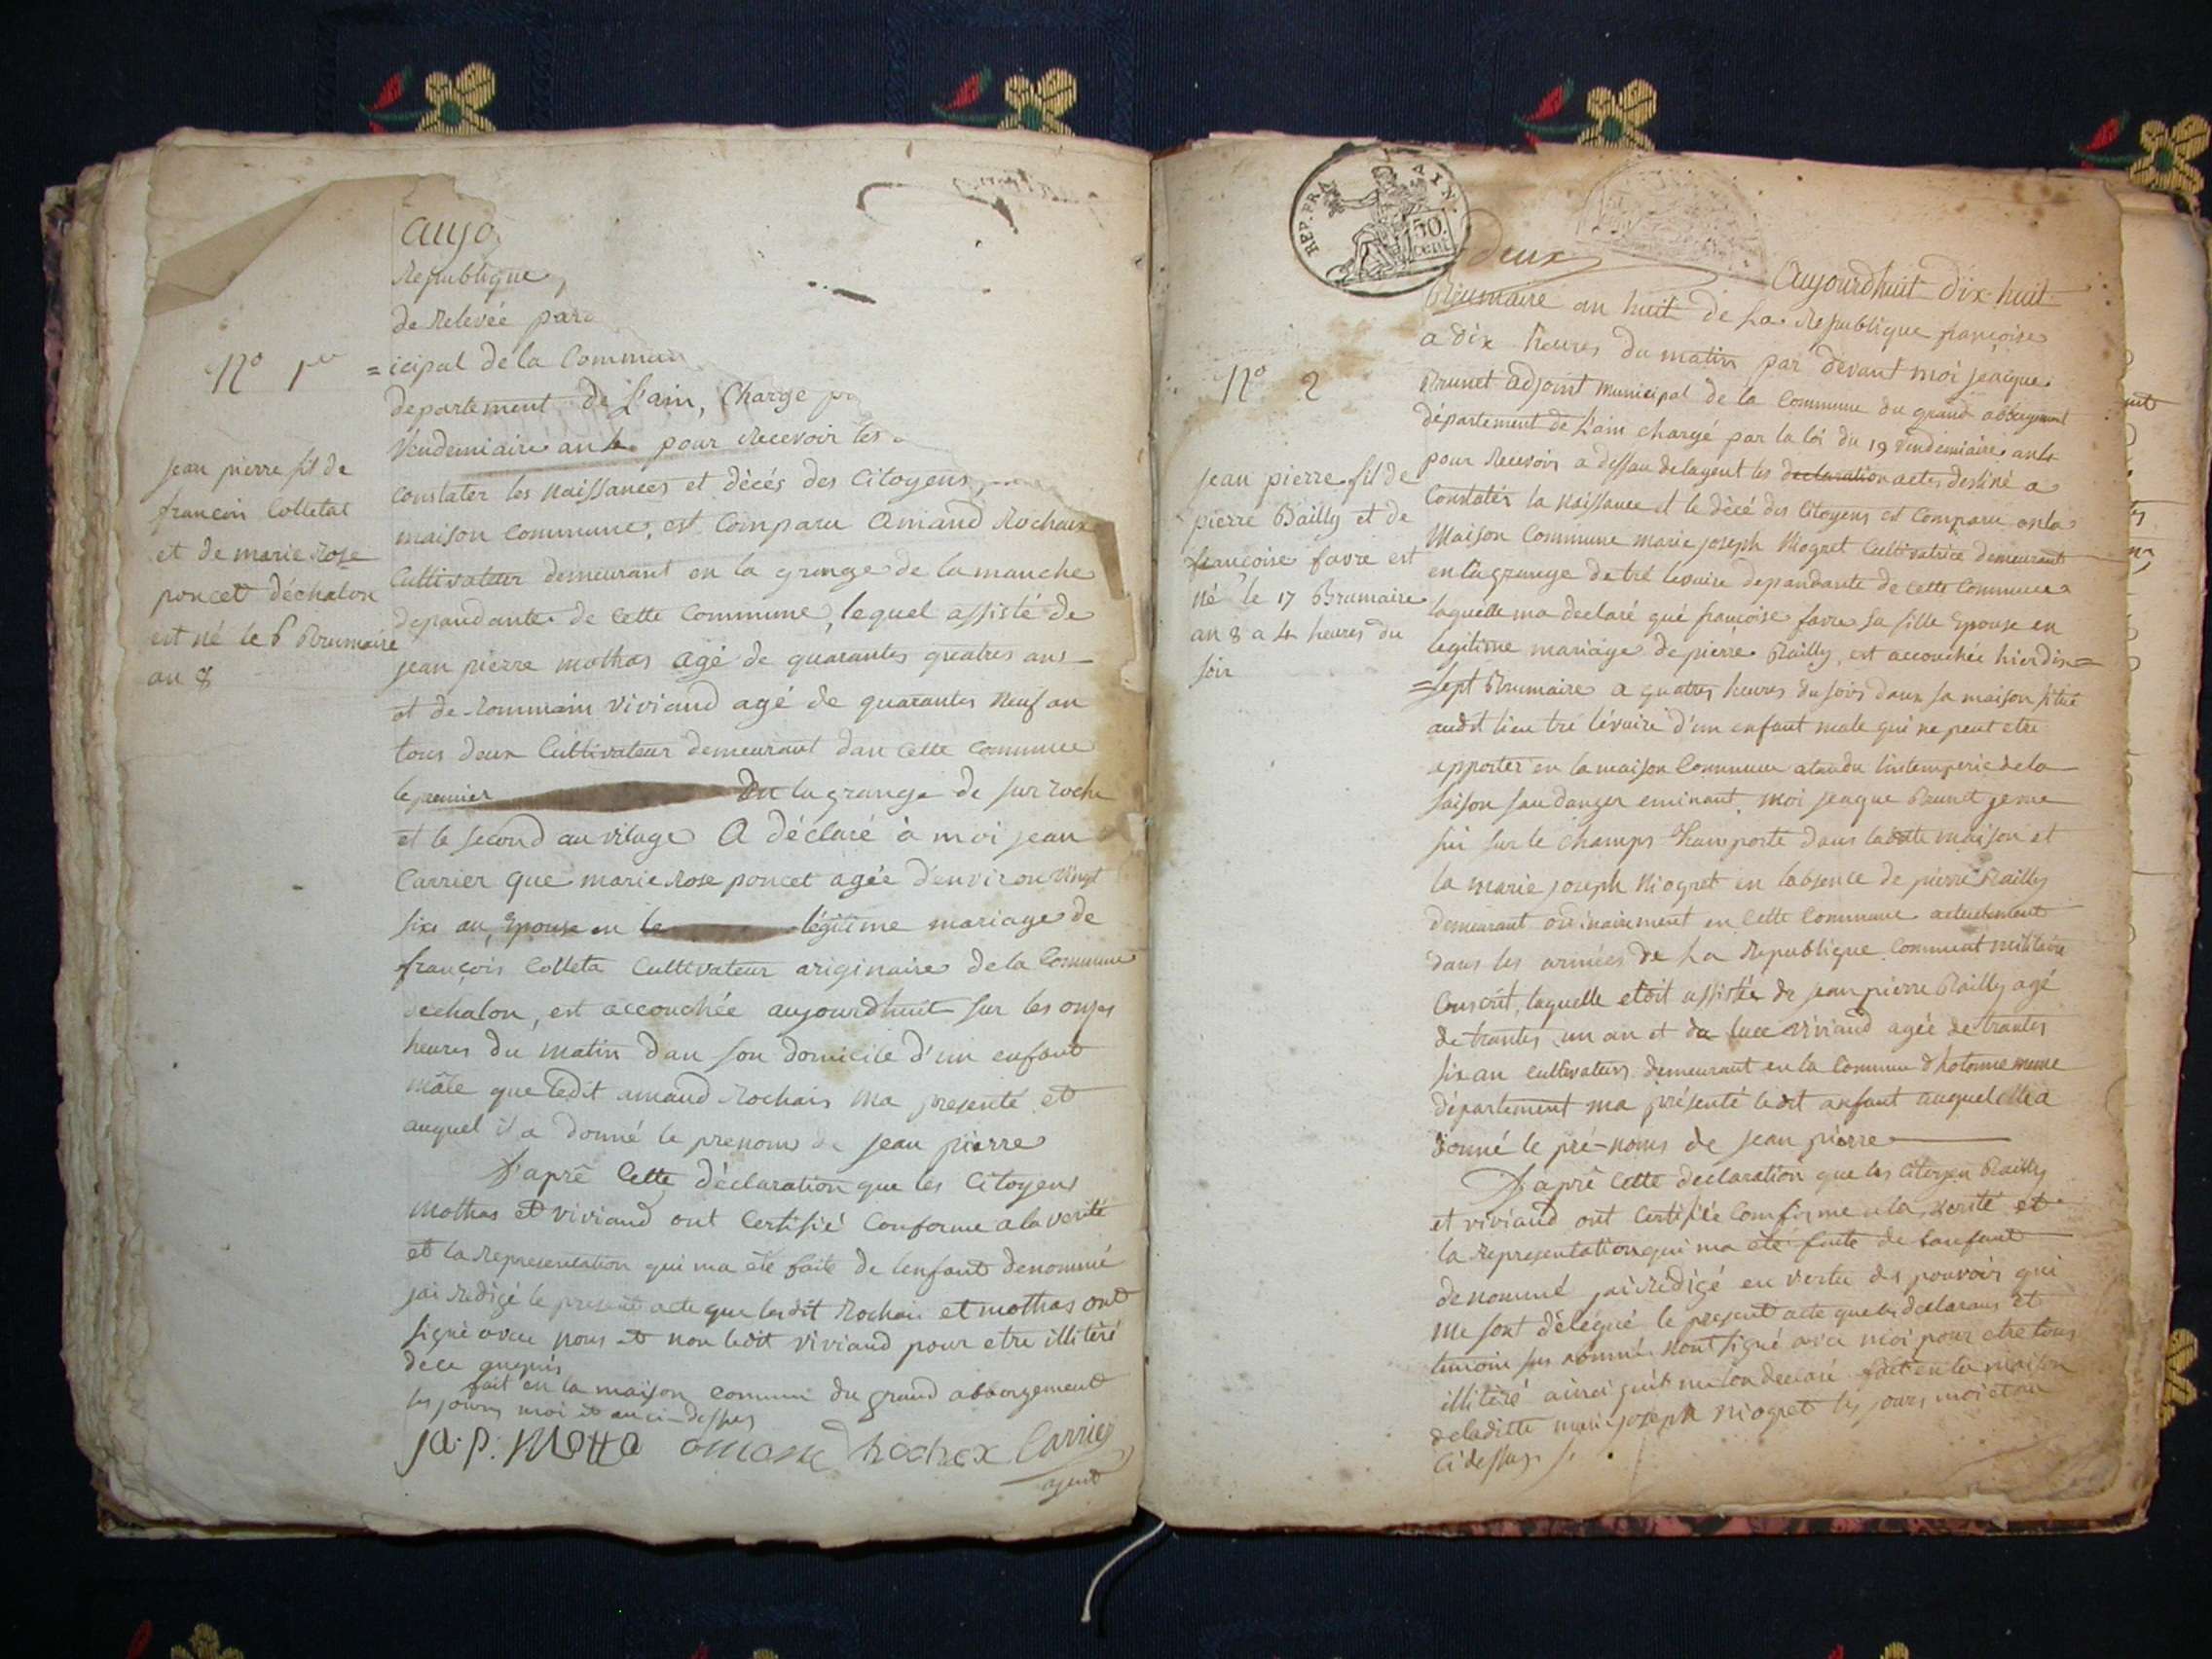 aujo
Republique
de Relevée par
N° 1er
=icipal de la Commun
departement de L'ain, Charge
Vendemiaire an 4 pour Recevoir les
Constater les naissances et décés des Citoyens
maison Commune, est Comparu Amand Rochaix
Cultivateur demeurant en la grange de la manche
depandante de Cette Commune, lequel assisté de
jean pierre mothas agé de quarantes quatres ans
et de Rommain Viviand agé de quarantes neuf an
tous deux Cultivateur demeurant dan Cette Commune
le premier en la grange de sur roche
et le second au vilage A déclaré à moi jean
Carrier que marie Rose poncet agée d'environ vingt
six an, Epouse en le légitime mariage de
françois Colleta Cultivateur originaire de la Commune
dechalon, est accouchée aujourdhuit sur les onzes
heures du matin dan son domicile d'un enfant
mâle que ledit amand Rochais ma presenté et
auquel il a donné le prenom de jean pierre
D'aprê Cette déclaration que les Citoyens
mothas et viviand ont Certifié Conforme a la verité
et la Representation qui ma été faite de lenfant denommé
jai Redigé le present acte que lesdit Rochai et mothas ont
signé avec nous et non ledit Viviand pour etre illitéré
de ce enquis
fait en la maison commune du grand abbergement
les jours moi et an ci-dessus
ja. p. Motta amand Rochex Carrier
agent
jean pierre fil de
françois Colletat
et de marie Rose
poncet déchalon
est né le 6 Brumaire
an 8
REP. FRA. AIN.
50.
cent.
deux
Aujourdhuit dix-huit
Brumaire an huit de La Republique françoise
a dix heures du matin par devant moi jeaque
Brunet adjoint municipal de la Commune du grand abbergement
département de L'ain chargé par la loi du 19 Vendemiaire an 4
pour Recevoir a deffau de lagent les declaration actes destiné a
Constater la naissance et le décé des Citoyens est Comparu en la
Maison Commune marie joseph Niogret Cultivatrice demeurant
en la grange de tré levaire depandante de cette Commune
laquelle ma declaré que françoise favre sa fille Epouse en
legitime mariage de pierre Bailly, est accouchée hier dix=
=sept Brumaire a quatres heures du soir dans sa maison situé
audit lieu tré lévaire d'un enfant male qui ne peut etre
apporter en la maison Commune atandu lintemperie de la
saison san danger eminant, moi jeaque Brunet je me
sui sur le champs transporté dans ladite maison et
la marie joseph Niogret en labsence de pierre Bailly
demeurant ordinairement en Cette Commune actuelement
dans les armées de La Republique Comment militaire
Conscrit, laquelle etoit assistée de jean pierre Bailly agé
de trantes un an et de luce viviand agée de trantes
six an cultivateurs demeurant en la Commune d'hotonne meme
département ma présenté ledit anfant auquel elle a
donné le pré-noms de jean pierre
D'aprê Cette declaration que les Citoyen Bailly
et viviand ont Certifiée Comfirme a la verité et
la Representation qui ma été faite de lanfant
denommé jai rédigé en vertu des pouvoirs qui
me sont délégué le present acte que les declarans et
temoins sus nommé nont signé avec moi pour etre tous
illitéré ainsi quils me lon declaré fait en la maison
de laditte marie joseph Niogret les jours moi et an
Ci dessus
N° 2
jean pierre fil de
pierre Bailly et de
françoise favre est
né le 17 Brumaire
an 8 a 4 heures du
soir